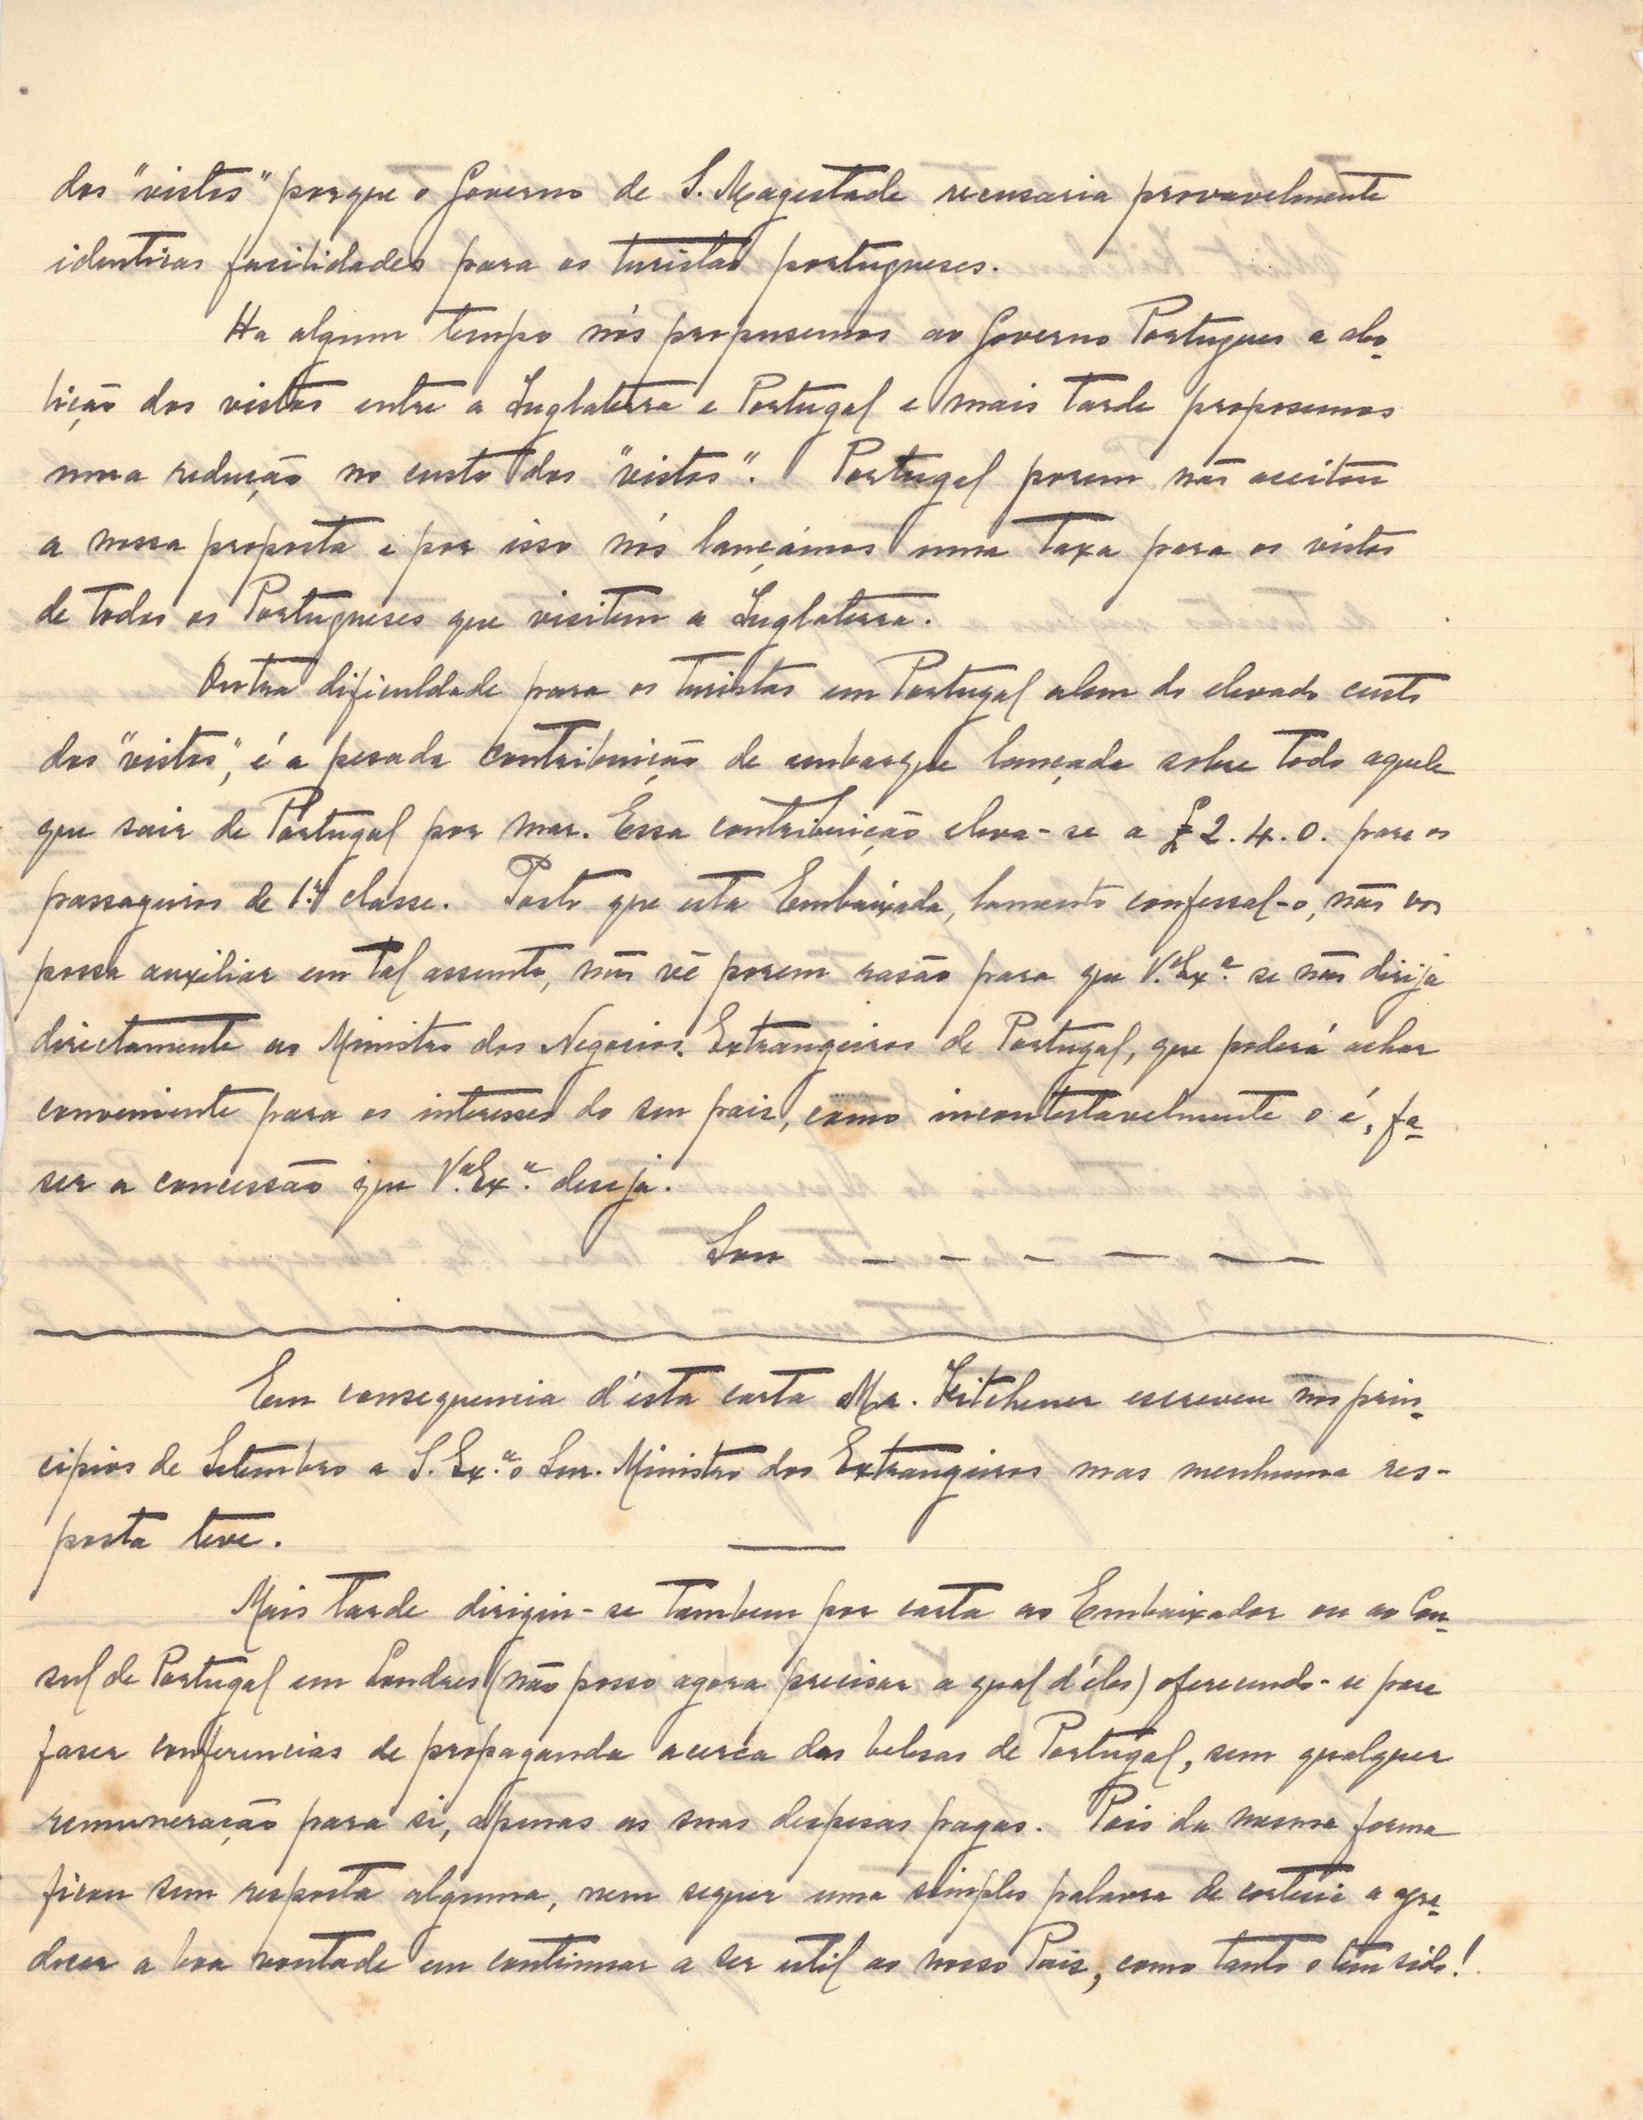 dos "vistos" porque o Governo de S. Magestade recusaria provavelmente
identicas facilidades para os turistas portugueses.
Ha algum tempo nós propusemos ao Governo Portugues a abo-
lição dos vistos entre a Inglaterra e Portugal e mais tarde proposemos
uma redução no custo dos "vistos". Portugal porem não aceitou
a nossa proposta e por isso nós lançámos uma taxa para os vistos
de todos os Portugueses que visitem a Inglaterra.
Outra dificuldade para os turistas em Portugal alem do elevado custo
dos "vistos", é a pesada contribuição de embarque lançada sobre todo aquele
que sair de Portugal por mar. Essa contribuição eleva-se a £ 2.4.0. para os
passageiros de 1.ª classe. Posto que esta Embaixada, lamento confessal-o, não vos
possa auxiliar em tal assunto, não vê porem rasão para que V.ª Ex.ª se não dirija
directamente ao Ministro dos Negocios Extrangeiros de Portugal, que poderá achar
conveniente para os interesses do seu pais, como incontestavelmente o é, fa-
ser a concessão que V.ª Ex.ª deseja.
Sou — — — — —
Em consequencia d'esta carta Mr. Kitchener escreveu nos prin-
cipios de Setembro a S. Ex.ª o Snr. Ministro dos Extrangeiros mas nenhuma res-
posta teve.
Mais tarde dirigiu-se tambem por carta ao Embaixador ou ao Con-
sul de Portugal em Londres (não posso agora precisar a qual d'eles) oferecendo-se para
faser conferencias de propaganda acerca das belesas de Portugal, sem qualquer
remuneração para si, apenas as suas despesas pagas. Pois da mesma forma
ficou sem resposta alguma, nem sequer uma simples palavra de cortesia a agra-
decer a boa vontade em continuar a ser util ao nosso Pais, como tanto o tem sido!